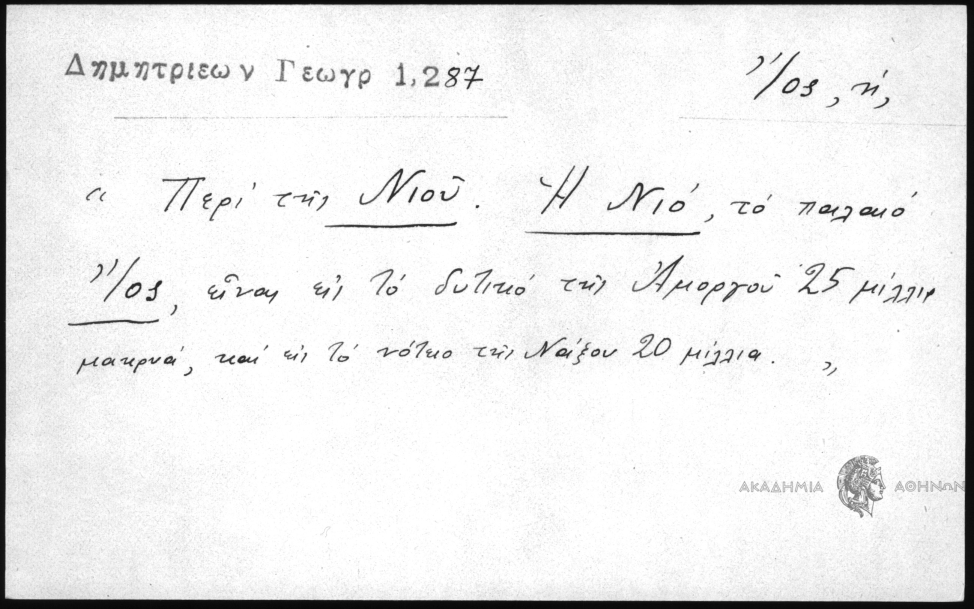 Δημητριεων Γεωγρ 1,287
Ἴος, ἡ,
“ Περί τῆς Νιοῦ. Ἡ Νιό, τό παλαιό
Ἴος, εἶναι εἰς τό δυτικό τῆς Ἀμοργοῦ 25 μίλλια
μακρυά, καί εἰς τό νότειο τῆς Νάξου 20 μίλλια. „
ΑΚΑΔΗΜΙΑ ΑΘΗΝΩΝ